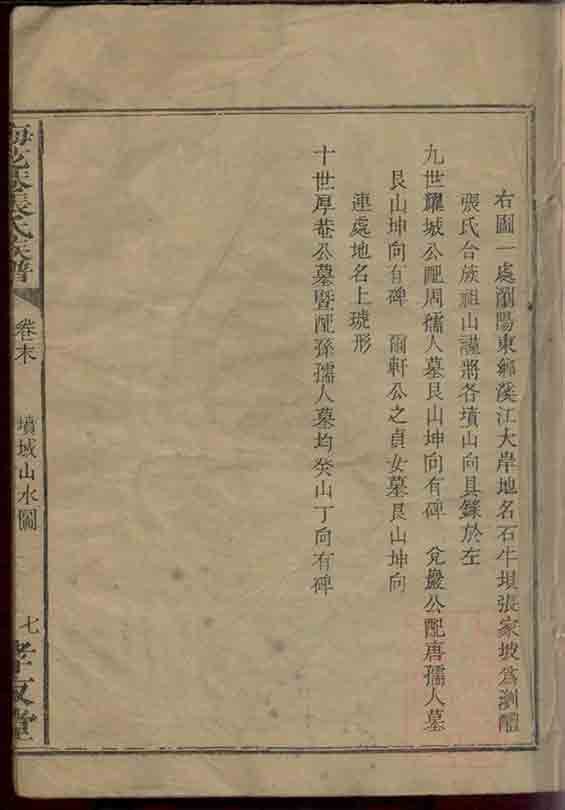 右圖一處瀏陽東鄉溪江大岸地名石牛埧張家坡爲瀏醴
張氏合族祖山謹將各墳山向具錄於左
九世耀城公配周孺人墓艮山坤向有碑　兌巖公配唐孺人墓
艮山坤向有碑　爾軒公之貞女墓艮山坤向
連處地名上琥形
十世厚菴公墓暨配孫孺人墓均癸山丁向有碑
張氏族譜
卷末
墳域山水圖
七
孝友堂